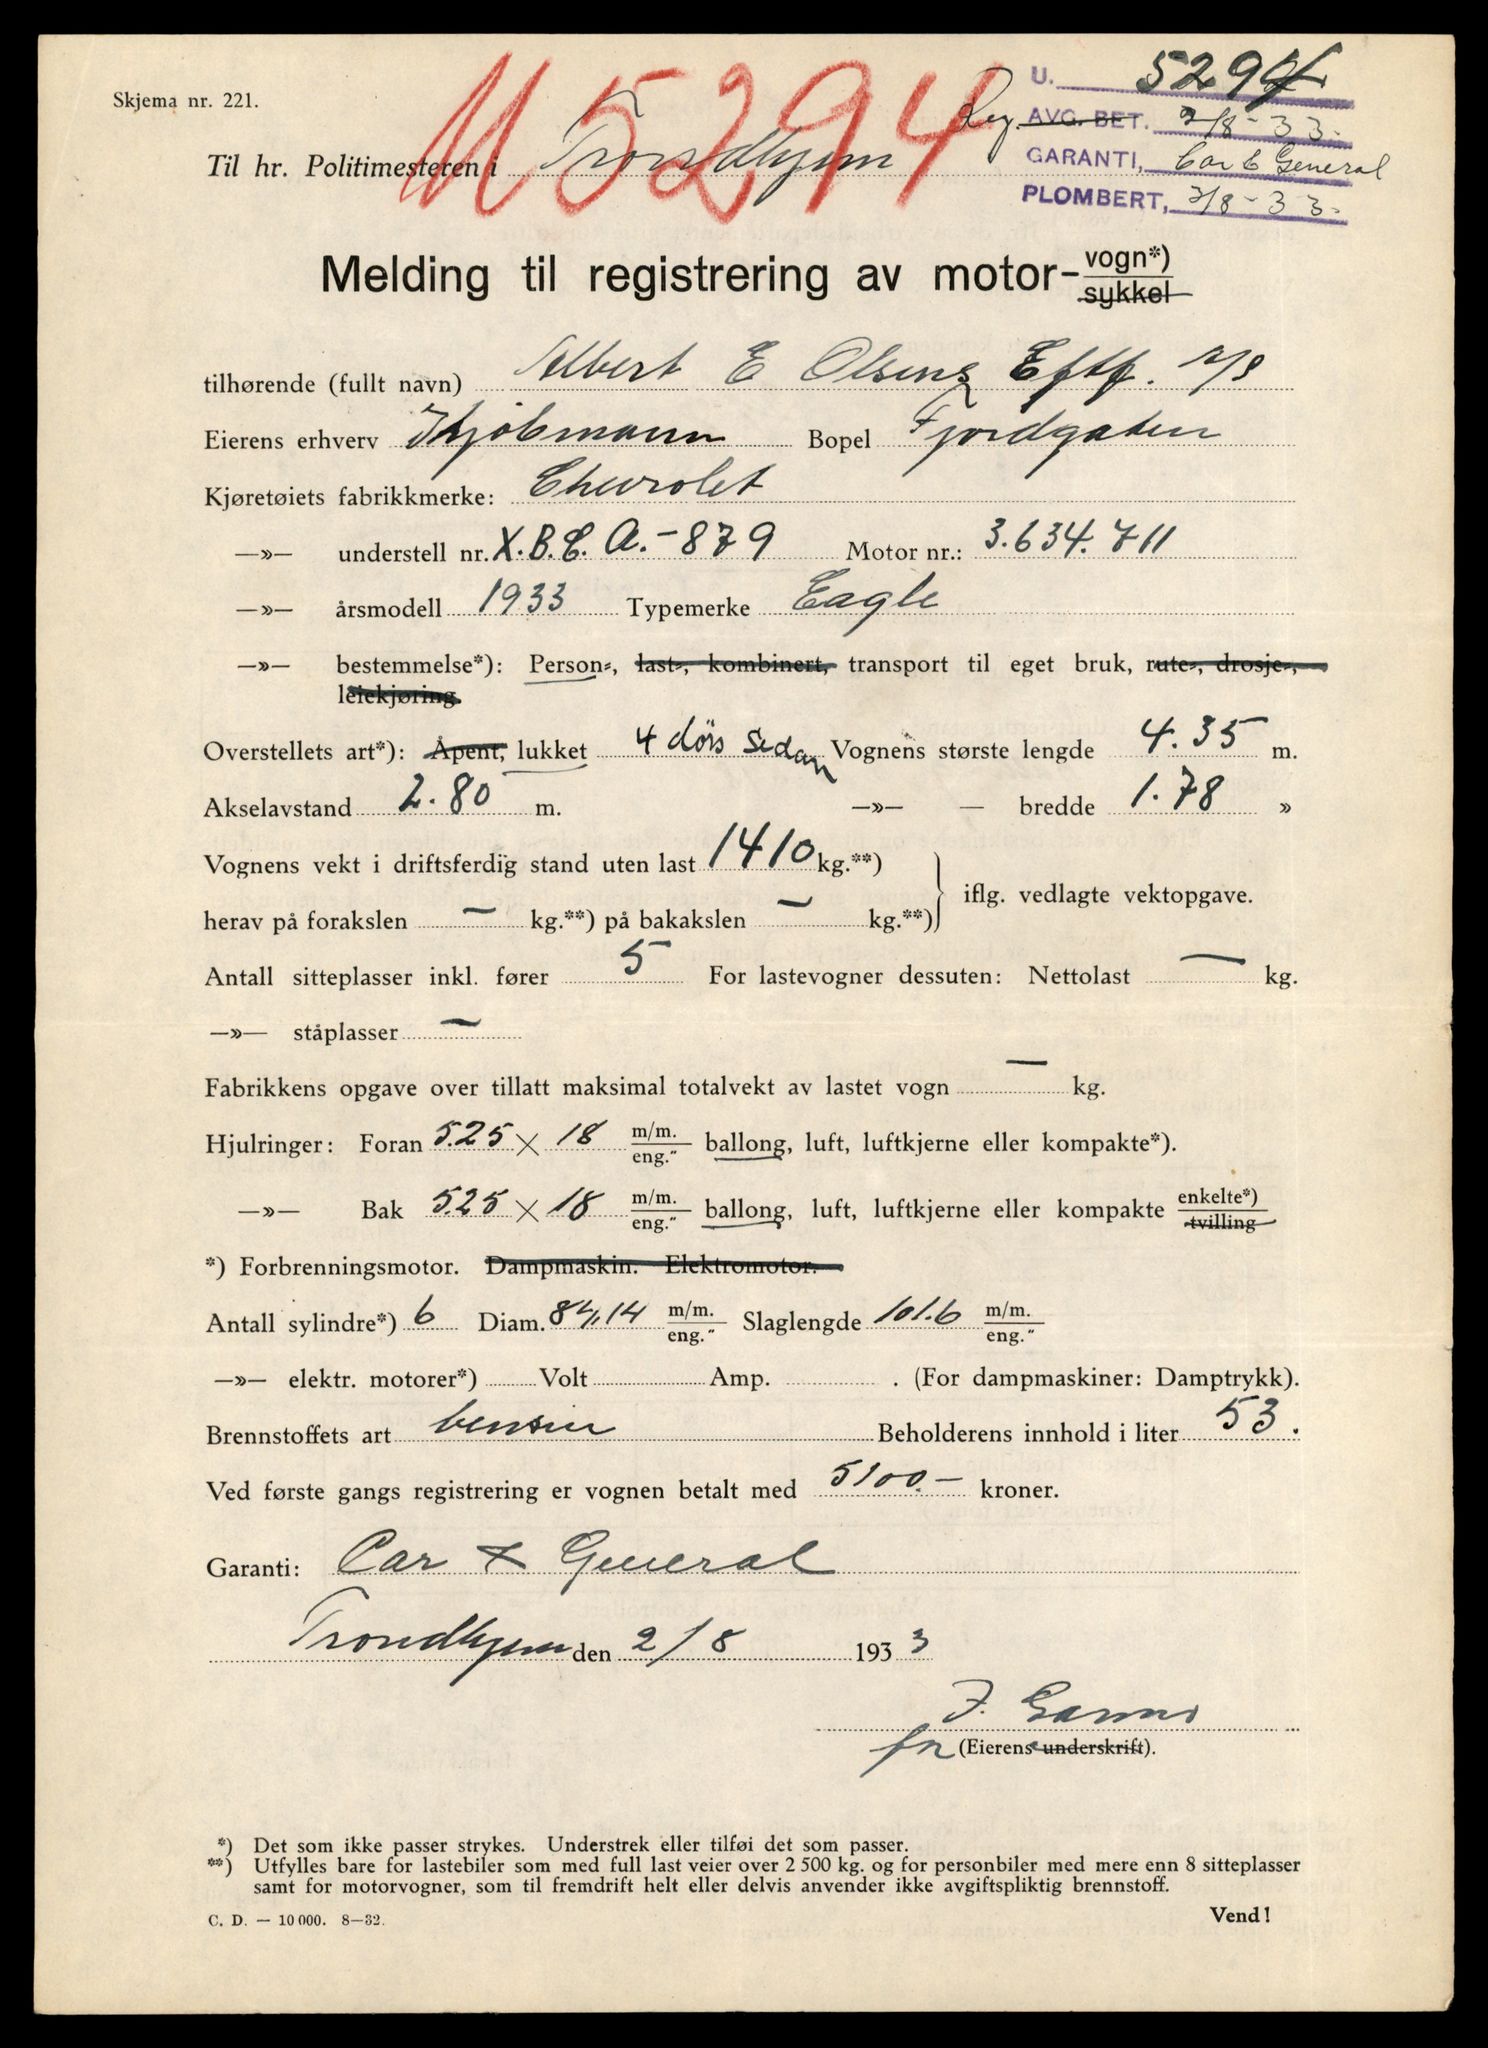 M 5294
U. 5294
Skjema nr. 221.
Reg. AVG. BET. 2/8-33-
Til hr. Politimesteren i Trondhjem
GARANTI, Car & General
PLOMBERT, 2/8-33-
Melding til registrering av motor-vogn*)
sykkel
tilhørende (fullt navn) Albert E Olsens Eftf. A/S
Eierens erhverv Kjøbmann Bopel Fjordgaten
Kjøretøiets fabrikkmerke: Chevrolet
—»— understell nr. X.B.C.A.-879 Motor nr.: 3.634.711
—»— årsmodell 1933 Typemerke Eagle
—»— bestemmelse*): Person-, last-, kombinert, transport til eget bruk, rute-, drosje-,
leiekjøring.
Overstellets art*): Åpent, lukket 4 dørs Sedan Vognens største lengde 4.35 m.
Akselavstand 2.80 m. —»— — bredde 1.78 »
Vognens vekt i driftsferdig stand uten last 1410 kg.**)
iflg. vedlagte vektopgave.
herav på forakslen — kg.**) på bakakslen — kg.**)
Antall sitteplasser inkl. fører 5 For lastevogner dessuten: Nettolast — kg.
—»— ståplasser —
Fabrikkens opgave over tillatt maksimal totalvekt av lastet vogn — kg.
Hjulringer: Foran 5.25 × 18 m/m. eng." ballong, luft, luftkjerne eller kompakte*).
—»— Bak 5.25 × 18 m/m. eng." ballong, luft, luftkjerne eller kompakte enkelte*) tvilling
*) Forbrenningsmotor. Dampmaskin. Elektromotor.
Antall sylindre*) 6 Diam. 84,14 m/m. eng." Slaglengde 101.6 m/m. eng."
—»— elektr. motorer*) Volt Amp. . (For dampmaskiner: Damptrykk).
Brennstoffets art bensin Beholderens innhold i liter 53.
Ved første gangs registrering er vognen betalt med 5100.- kroner.
Garanti: Car & General
Trondhjem den 2/8 1933
for (Eierens underskrift).
*) Det som ikke passer strykes. Understrek eller tilføi det som passer.
**) Utfylles bare for lastebiler som med full last veier over 2 500 kg. og for personbiler med mere enn 8 sitteplasser
samt for motorvogner, som til fremdrift helt eller delvis anvender ikke avgiftspliktig brennstoff.
C. D. — 10 000. 8—32.
Vend!